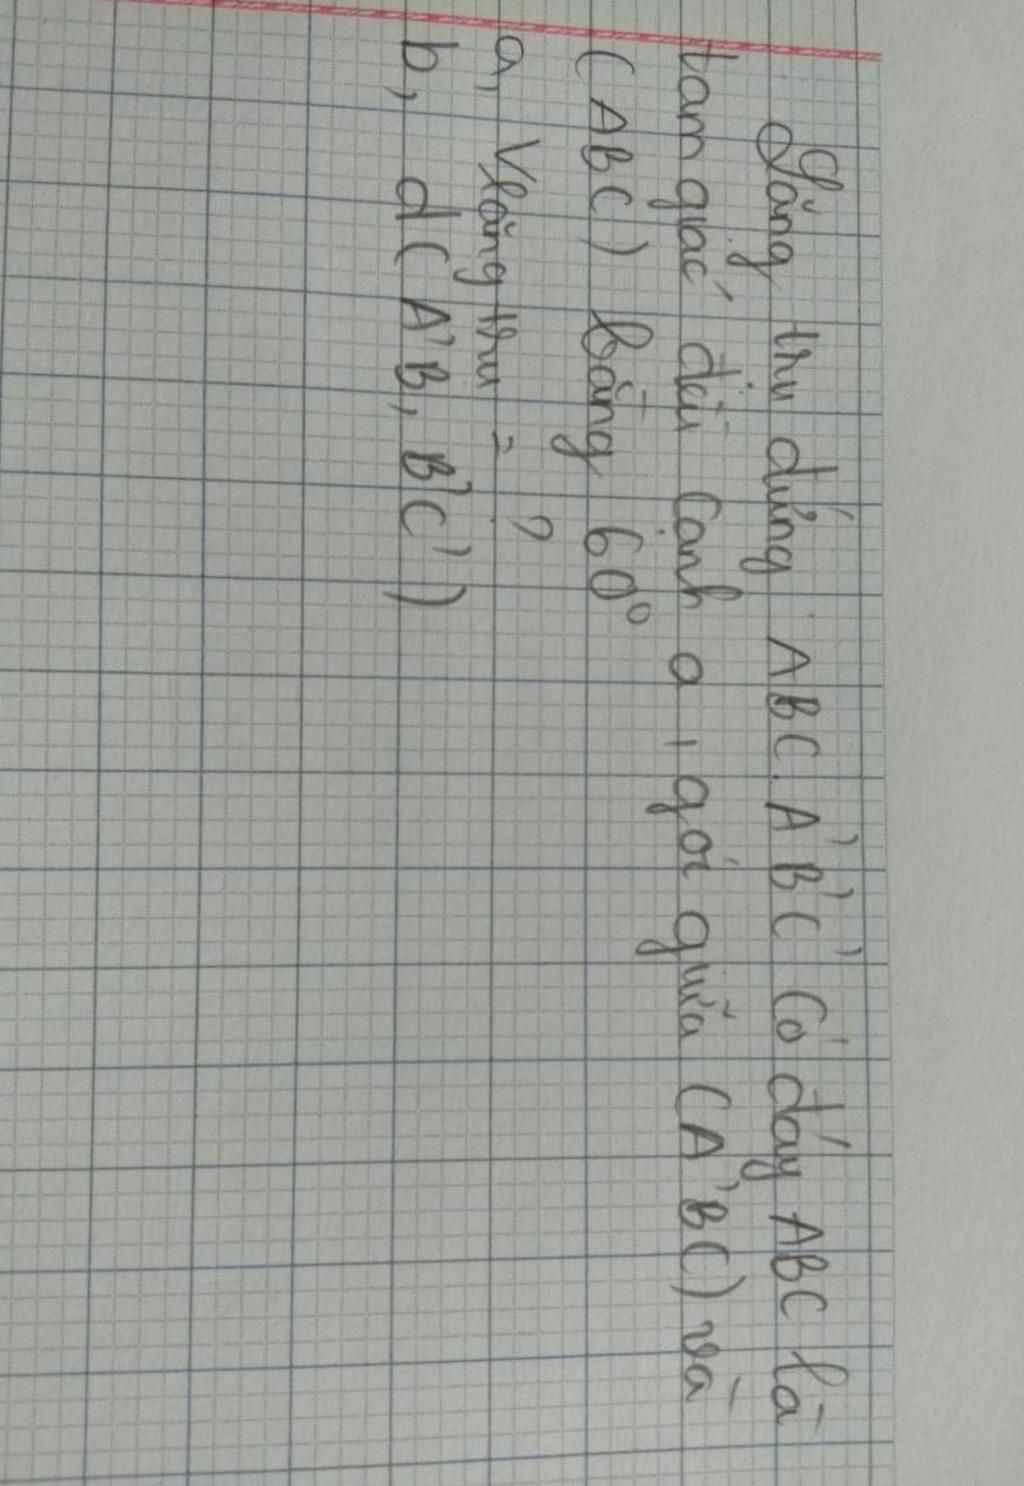 Lăng trụ đứng ABC.A'B'C' có đáy ABC là
tam giác đều cạnh a, góc giữa (A'BC) và
(ABC) bằng 60°
a, Vlăng trụ = ?
b, d(A'B, B'C')